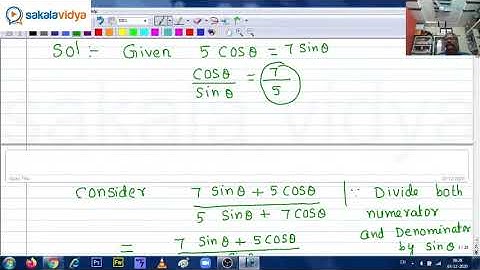 sakalavidya
Sol :- Given 5 cosθ = 7 sinθ
cosθ / sinθ = 7 / 5
Consider 7 sinθ + 5 cosθ / 5 sinθ + 7 cosθ
∵ Divide both
numerator
and Denominator
by sinθ
= 7 sinθ + 5 cosθ